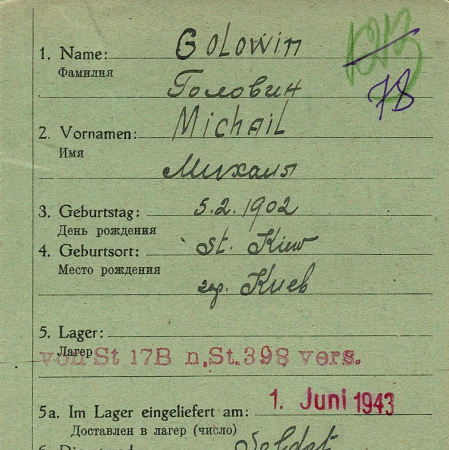 1. Name: Golowin
Фамилия
Головин
2. Vornamen: Michail
Имя
Михаил
3. Geburtstag: 5.2.1902
День рождения
4. Geburtsort: St. Kiew
Место рождения
гор. Киев
5. Lager:
Лагерь
von St 17B n. St. 398 vers.
5a. Im Lager eingeliefert am: 1. Juni 1943
Доставлен в лагерь (число)
Soldat
78